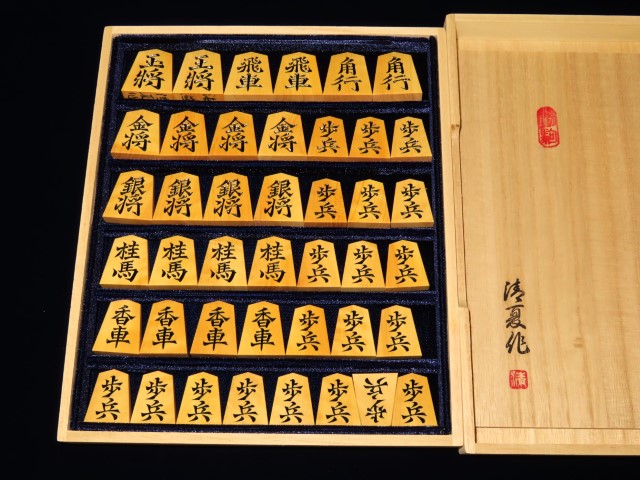 王将 玉将 飛車 飛車 角行 角行
金将 金将 金将 金将 歩兵 歩兵 歩兵
銀将 銀将 銀将 銀将 歩兵 歩兵 歩兵
桂馬 桂馬 桂馬 桂馬 歩兵 歩兵 歩兵
香車 香車 香車 香車 歩兵 歩兵 歩兵
歩兵 歩兵 歩兵 歩兵 歩兵 歩兵 歩兵 歩兵
清夏作